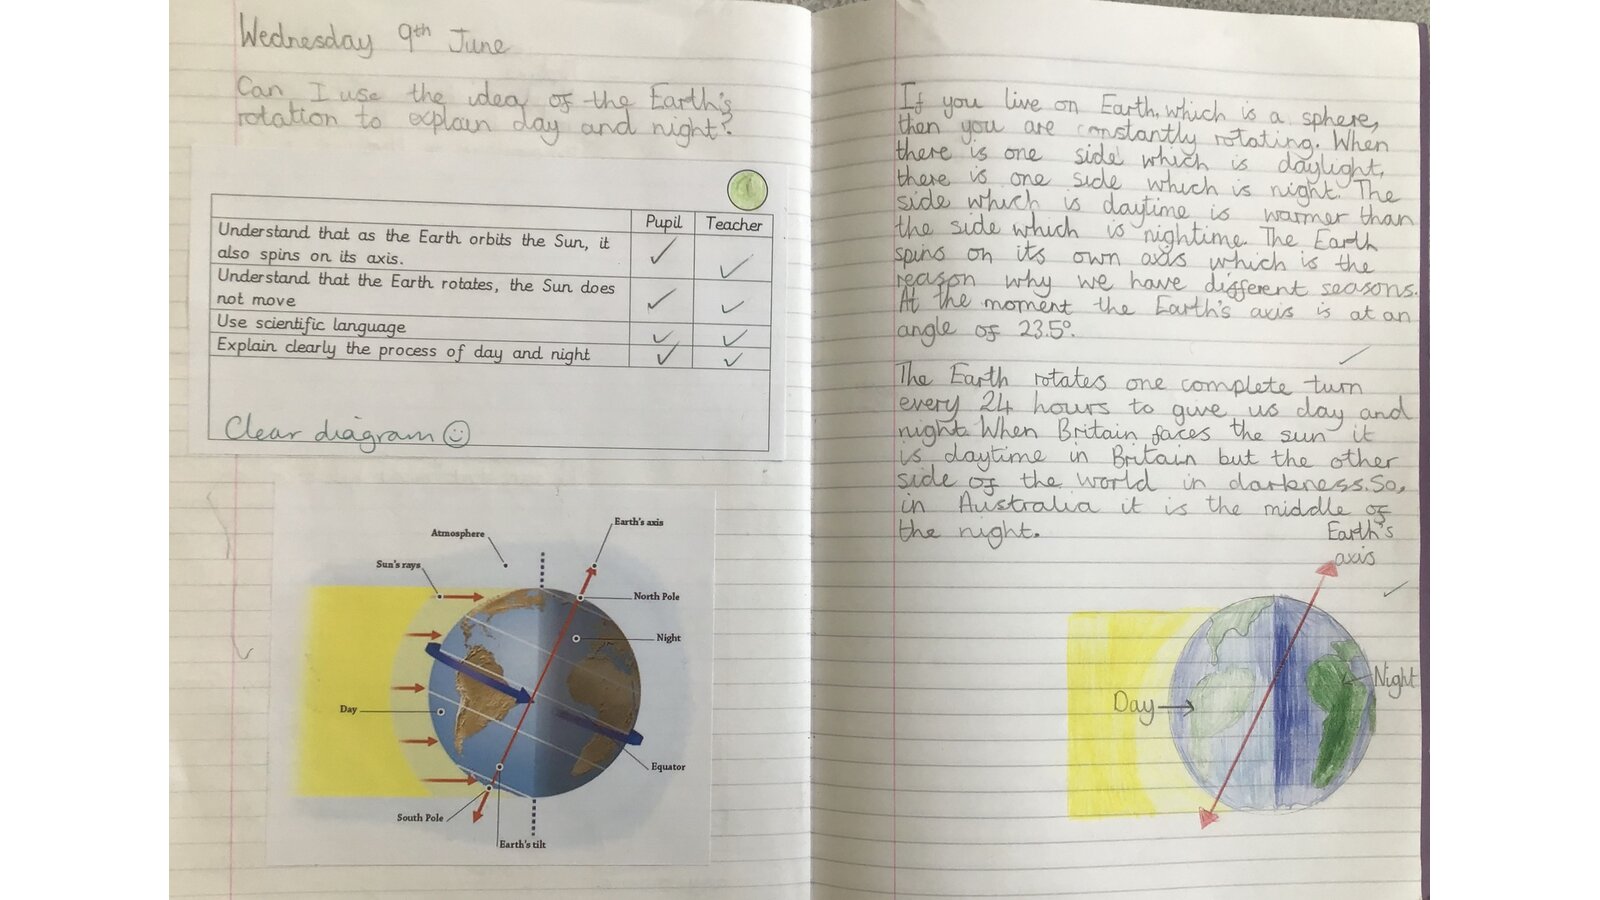 Wednesday 9th June
Can I use the idea of the Earth's
rotation to explain day and night?
Pupil
Teacher
Understand that as the Earth orbits the Sun, it
also spins on its axis.
Understand that the Earth rotates, the Sun does
not move
Use scientific language
Explain clearly the process of day and night
Clear diagram
Earth's axis
Atmosphere
Sun's rays
North Pole
Night
Day
Equator
South Pole
Earth's tilt
If you live on Earth, which is a sphere,
then you are constantly rotating. When
there is one side which is daylight,
there is one side which is night. The
side which is daytime is warmer than
the side which is nightime. The Earth
spins on its own axis which is the
reason why we have different seasons.
At the moment the Earth's axis is at an
angle of 23.5°.
The Earth rotates one complete turn
every 24 hours to give us day and
night. When Britain faces the sun it
is daytime in Britain but the other
side of the world in darkness. So,
in Australia it is the middle of
the night.
Earth's
axis
Day
Night